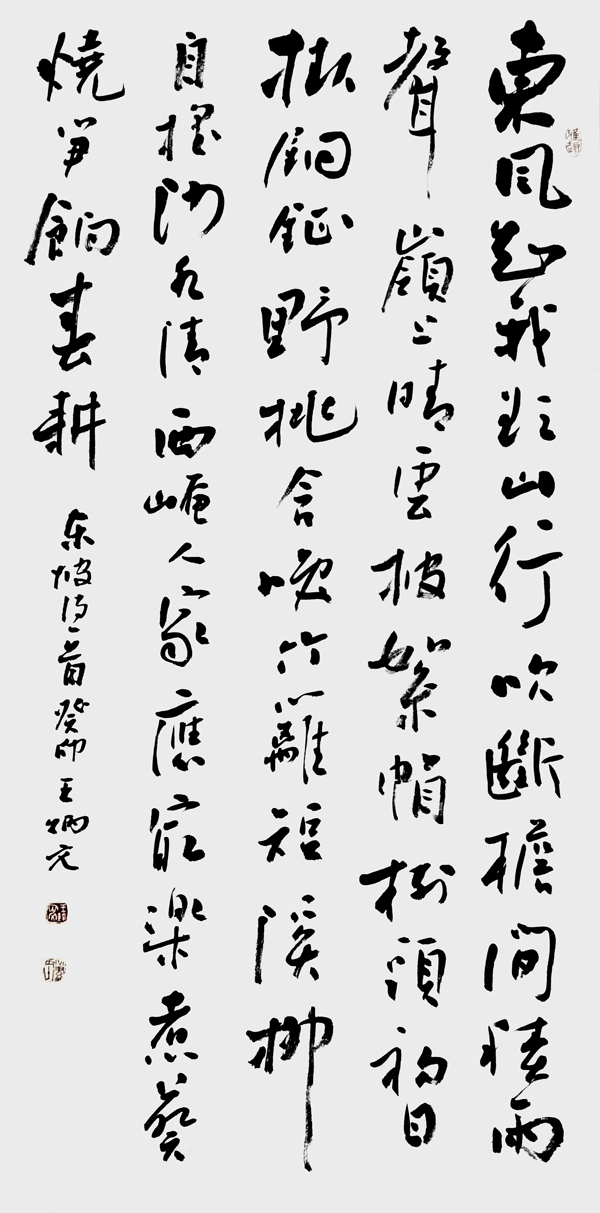 東風知我欲山行吹斷檐間積雨
聲嶺上晴雲披絮帽樹頭初日
掛銅鉦野桃含咲竹籬短溪柳
自搖沙水清西崦人家應最樂煮葵
燒笋餉春耕
东坡诗一首癸卯王炳元